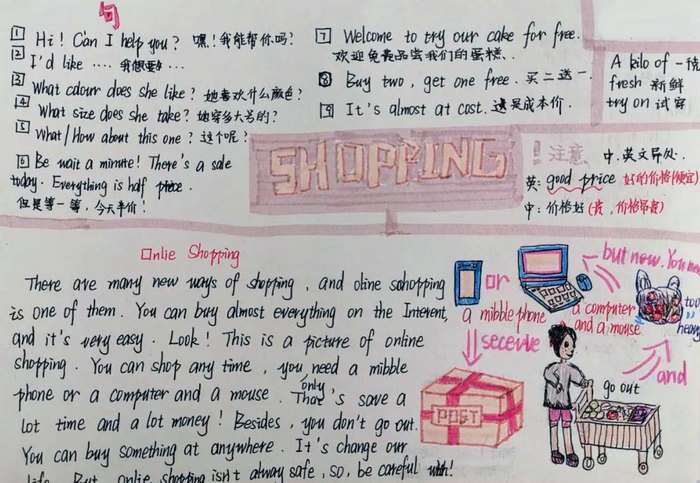 句
1 Hi! Can I help you? 嘿!我能帮你吗?
2 I'd like .... 我想要...
3 What colour does she like? 她喜欢什么颜色?
4 What size does she take? 她穿多大号的?
5 What/How about this one? 这个呢?
6 Be wait a minute! There's a sale
today. Everything is half price.
但是等一等,今天半价!
7 Welcome to try our cake for free.
欢迎免费品尝我们的蛋糕..
8 Buy two, get one free. 买二送一.
9 It's almost at cost. 这是成本价.
A kilo of 一
fresh 新鲜
try on 试穿
SHOPPING
!注意 中.英文异处.
英: good price 好的价格(便宜)
中: 价格好(贵,价格昂贵)
Onlie Shopping
There are many new ways of shopping, and oline sahopping
is one of them. You can buy almost everything on the Interent,
and it's very easy. Look! This is a picture of online
shopping. You can shop any time, you need a mibble
phone or a computer and a mouse. That's only save a
lot time and a lot money! Besides, you don't go out.
You can buy something at anywhere. It's change our
life. But, onlie shopping isn't alway safe, so, be careful
or
a mibble phone
a computer
and a mouse
but now. You
too
heavy
and
go out
secevue
POST